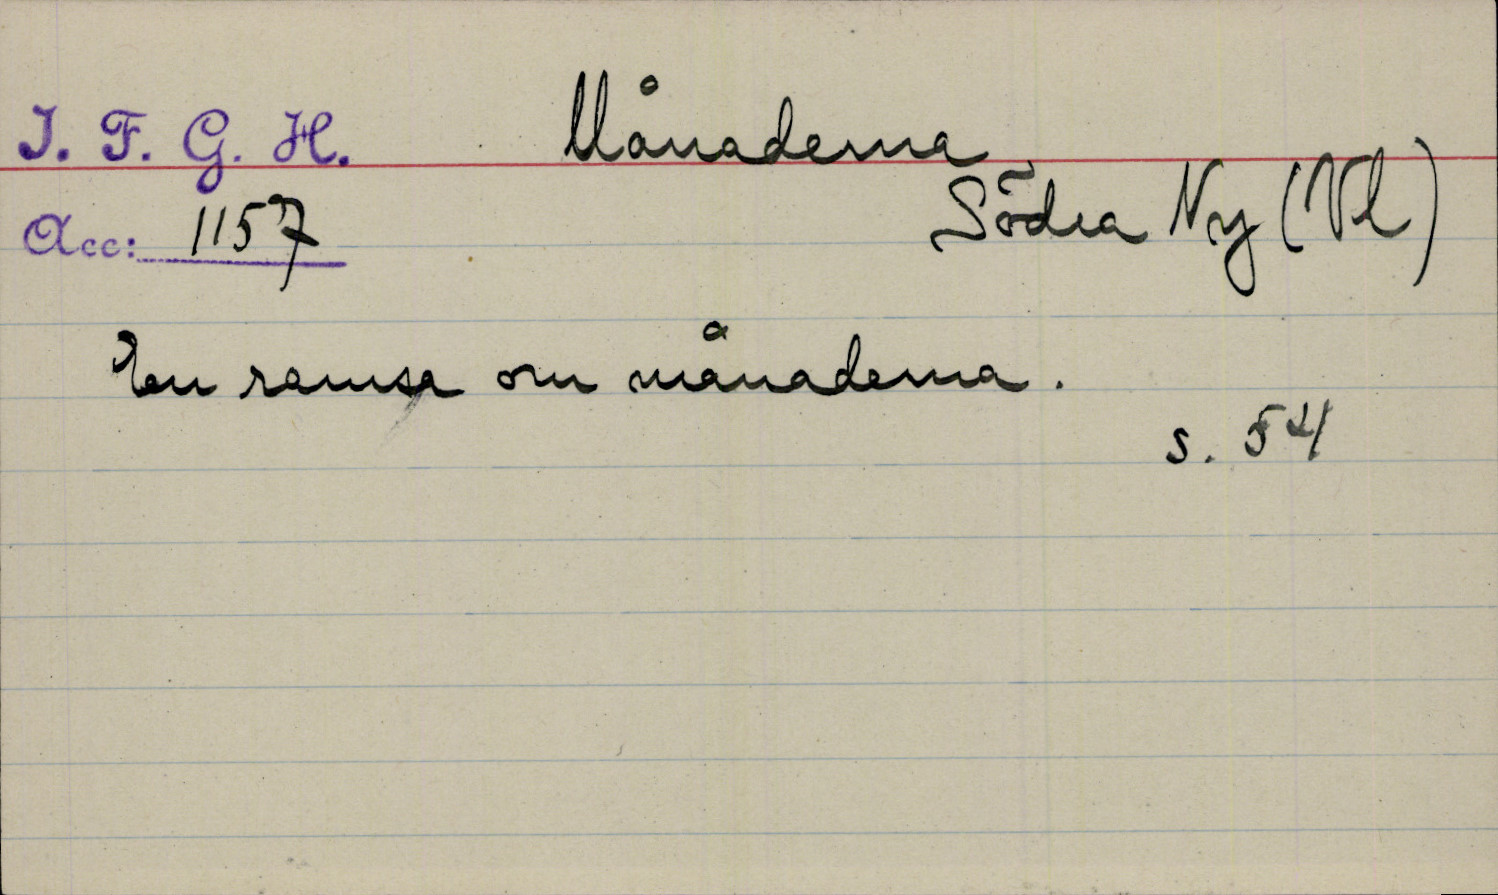 I. F. G. H.
Månaderna
Södra Ny (Vl)
Acc: 1157
En ramsa om månaderna.
s. 54